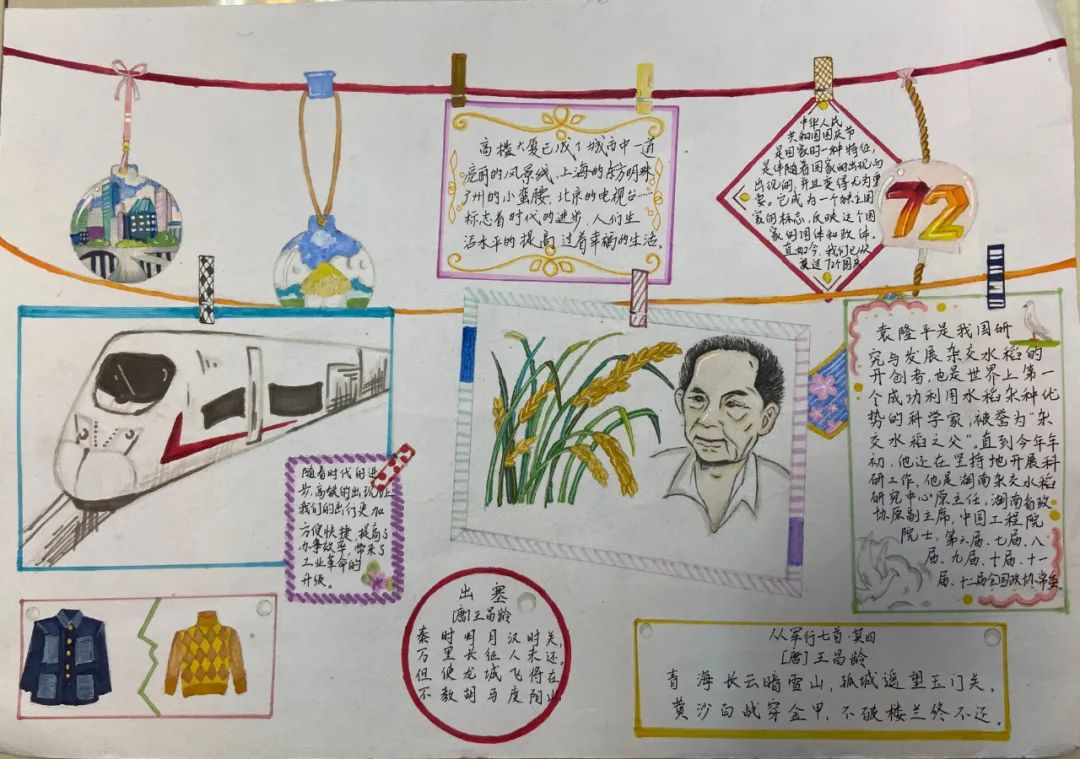 高楼大厦已成了城市中一道
亮丽的风景线,上海的东方明珠,
广州的小蛮腰、北京的电视台……
标志着时代的进步,人们生
活水平的提高,过着幸福的生活。
中华人民
共和国国庆节
是国家的一种特征,
是伴随着国家的出现而
出现的,并且变得尤为重
要。它成为一个独立国
家的标志,反映这个国
家的国体和政体。
直如今,我们已欢
度过72个国庆
72
袁隆平是我国研
究与发展杂交水稻的
开创者,也是世界上第一
个成功利用水稻杂种优
势的科学家,被誉为“杂
交水稻之父”。直到今年年
初,他还在坚持地开展科
研工作,他是湖南杂交水稻
研究中心原主任,湖南省政
协原副主席,中国工程院
院士,第六届、七届、八
届、九届、十届、十一
届、十二届全国政协常委。
随着时代的进
步,高铁的出现让
我们的出行更加
方便快捷,提高了
办事效率,带来了
工业革命的
升级。
出塞
[唐]王昌龄
秦时明月汉时关,
万里长征人未还。
但使龙城飞将在,
不教胡马度阴山
从军行七首·其四
[唐]王昌龄
青海长云暗雪山,孤城遥望玉门关。
黄沙百战穿金甲,不破楼兰终不还。